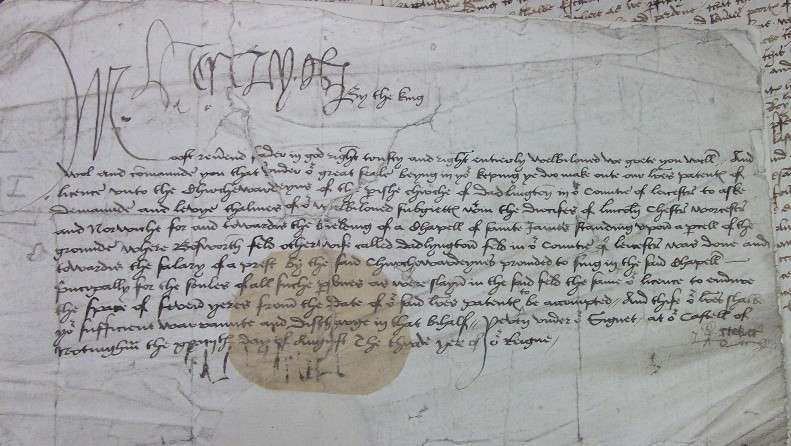 Henry R
By the king
Moost reverend fader in god right trusty and right entierly welbiloved we grete you well And
wol and comaunde you that under oʳ great seale beyng in yoʳ keping ye do make oute our lres patentx of
licence unto the Chirchewardeyns of the pisshe chirche of Dadlington in oʳ Countie of leicestre to aske
demaunde and levye thalmes of oʳ welbiloved subgiettx wᵗin the diocises of lincoln Chestre worcestre
and Norwiche for and towardes the bielding of a Chapell of sainte James standing upon a pcell of the
grounde where Bosworth feld otherwise called dadlyngton feld in oʳ Countie of leicestre was done and
towardes the salary of a prest by the said Chirchewardeyns provided to sing in the said Chapell
principally for the soules of all suche psones as were slayn in the said feld the same oʳ licence to endure
the space of seven yeres from the date of oʳ said lres patentx to be accompted And thise oʳ lres shalbe
yoʳ sufficient warraunte and discharge in that bihalf Yeven under oʳ Signet at oʳ Castell of
Notingham the day of August The thirde yere of oʳ Reigne